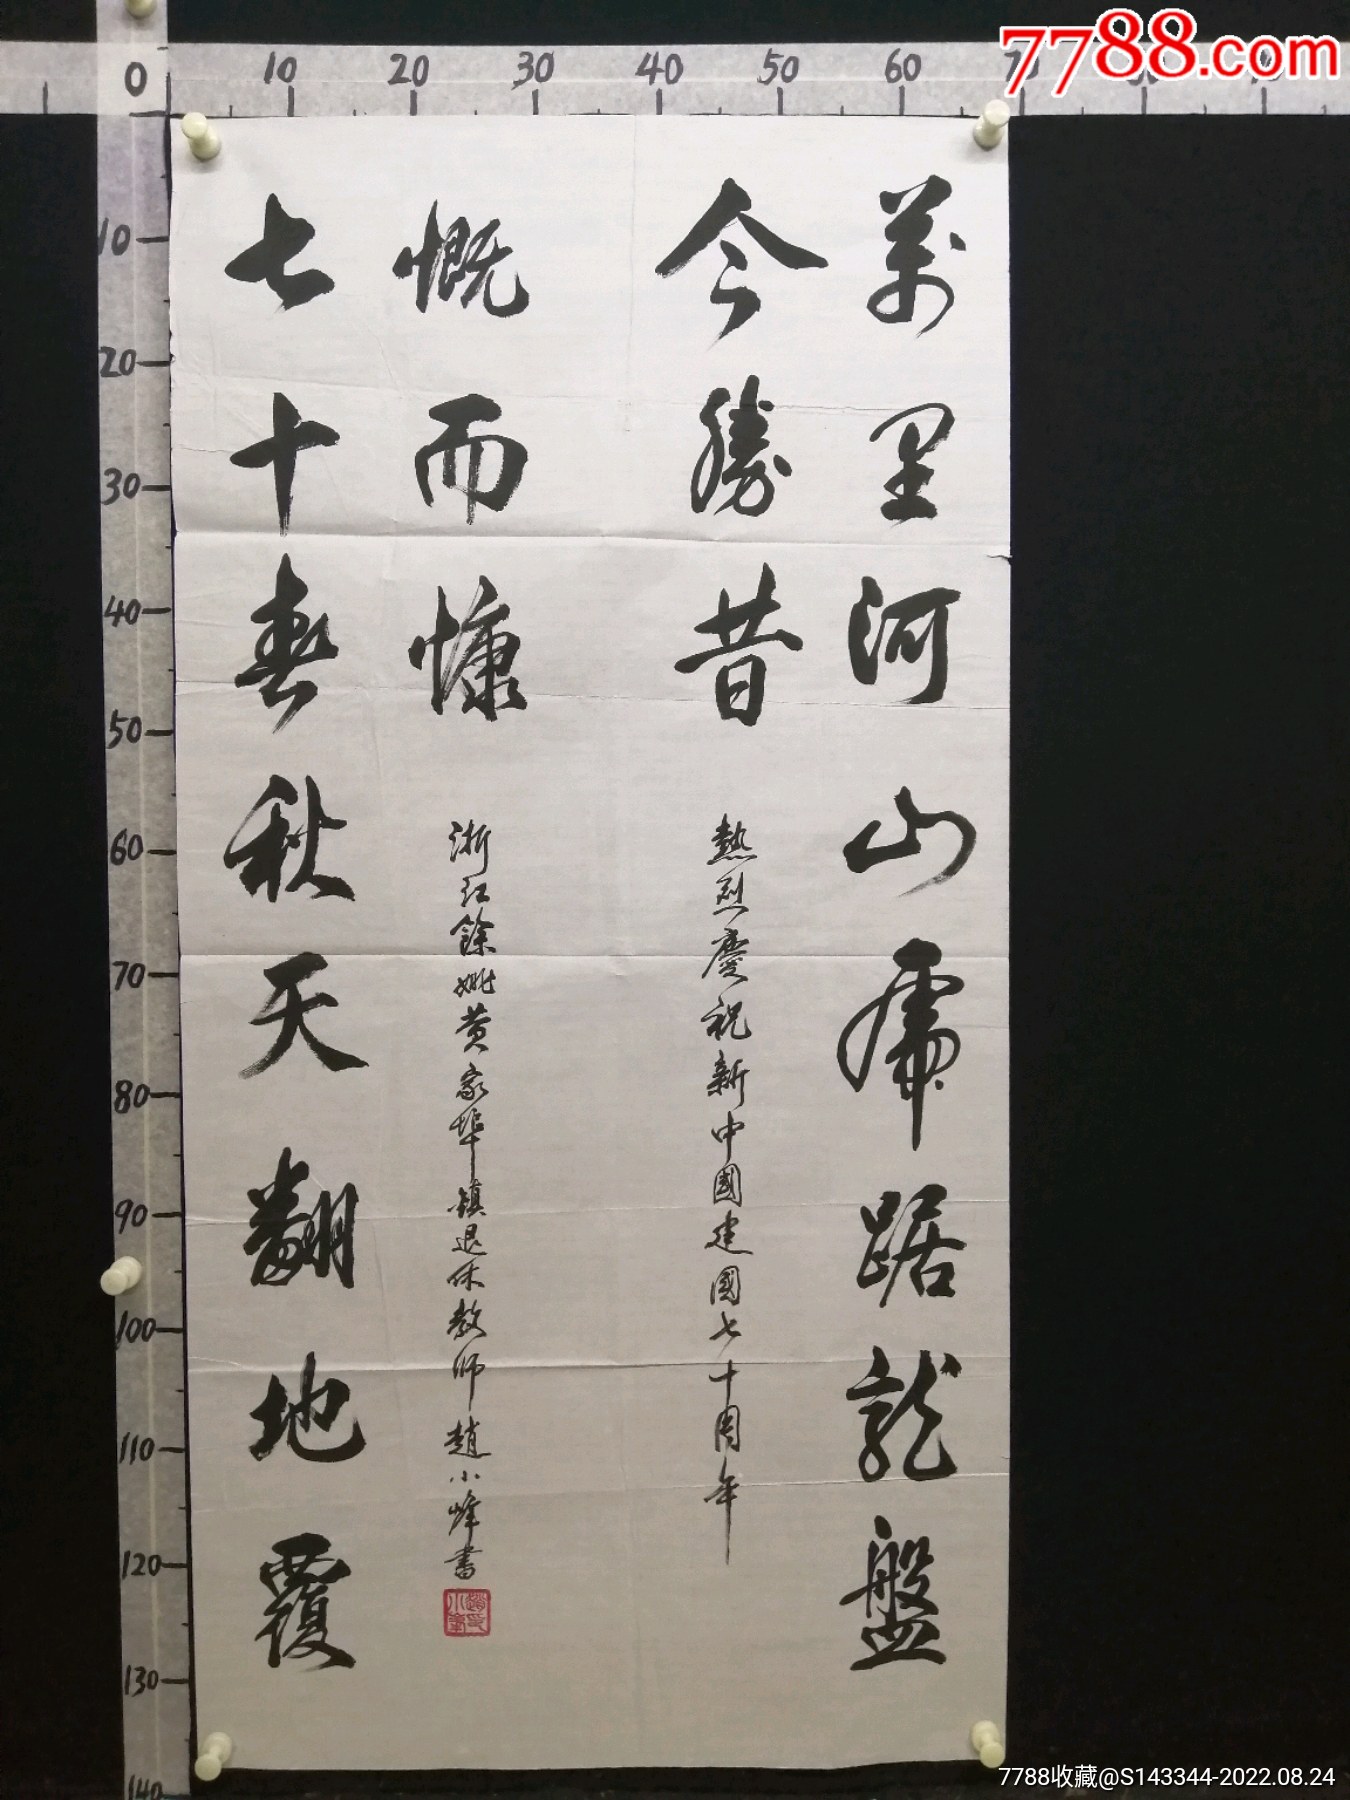 7788.com
0 10 20 30 40 50 60 70
10
20
30
40
50
60
70
80
90
100
110
120
130
140
萬里河山虎踞龍盤
今勝昔
熱烈慶祝新中國建國七十周年
七十春秋天翻地覆
慨而慷
浙江餘姚黄家埠鎮退休教師趙小烽書
7788收藏@S143344-2022.08.24